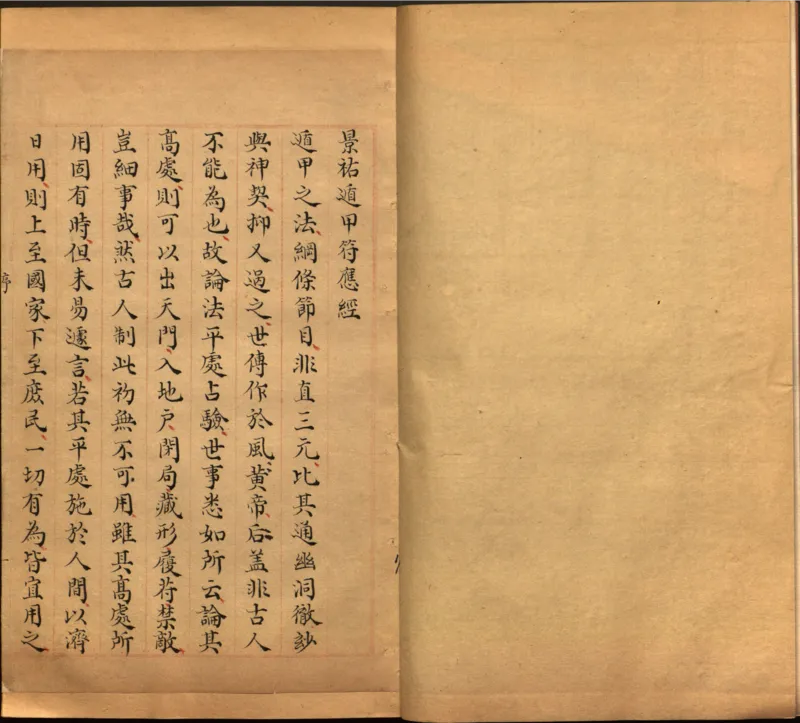 景祐遁甲符應經
遁甲之法綱條節目非直三元比其通幽洞徹玅
與神契抑又過之世傳作於風黄帝后盖非古人
不能為也故論法平處占驗世事悉如所云論其
高處則可以出天門入地户閉局藏形履苻禁敵
豈細事哉然古人制此初無不可用雖其高處所
用固有時但未易遽言若其平處施於人間以濟
日用則上至國家下至庶民一切有為皆宜用之
序